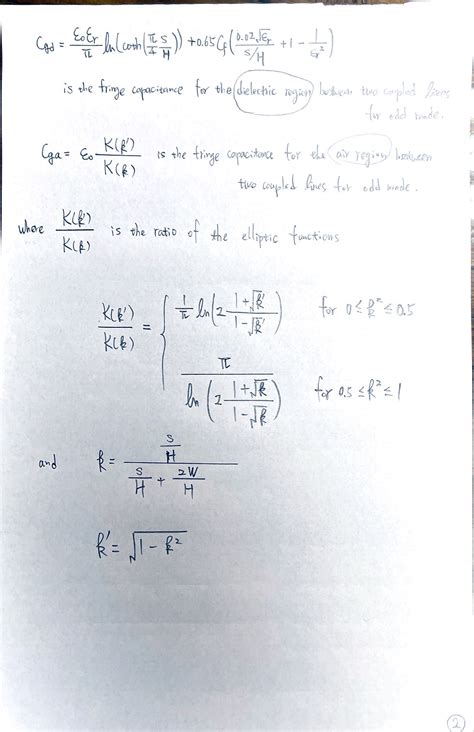 Cgd = ε₀εr/π ln(coth(π/4 S/H)) + 0.65 Cf (0.02√εr / S/H + 1 - 1/εr²)
is the fringe capacitance for the dielectric region between two coupled lines
for odd mode.
Cga = ε₀ K(k')/K(k) is the fringe capacitance for the air region between
two coupled lines for odd mode.
where K(k')/K(k) is the ratio of the elliptic functions
K(k')/K(k) = { 1/π ln(2 (1+√k')/(1-√k')) for 0 ≤ k² ≤ 0.5
π / ln(2 (1+√k)/(1-√k)) for 0.5 ≤ k² ≤ 1
and k = (S/H) / (S/H + 2W/H)
k' = √(1 - k²)
2